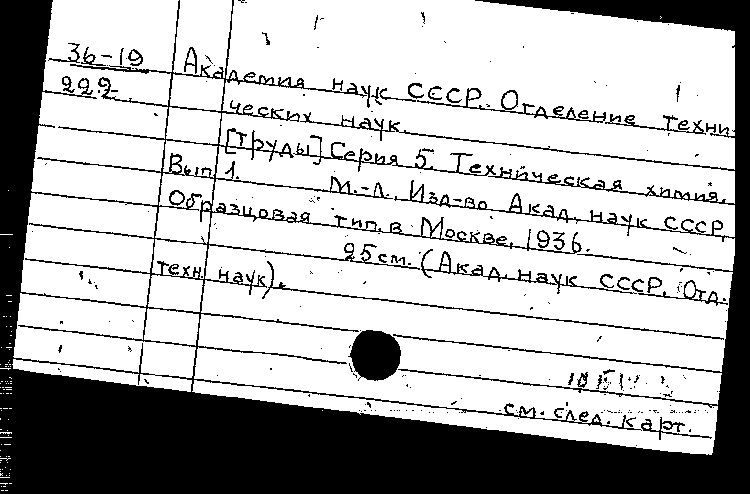 36-19
222
Академия наук СССР. Отделение техни-
ческих наук.
[Труды] Серия 5. Техническая химия.
Вып. 1. М.-Л., Изд-во Акад. наук СССР,
Образцовая тип. в Москве, 1936.
25 см. (Акад. наук СССР. Отд.
техн. наук).
см. след. карт.